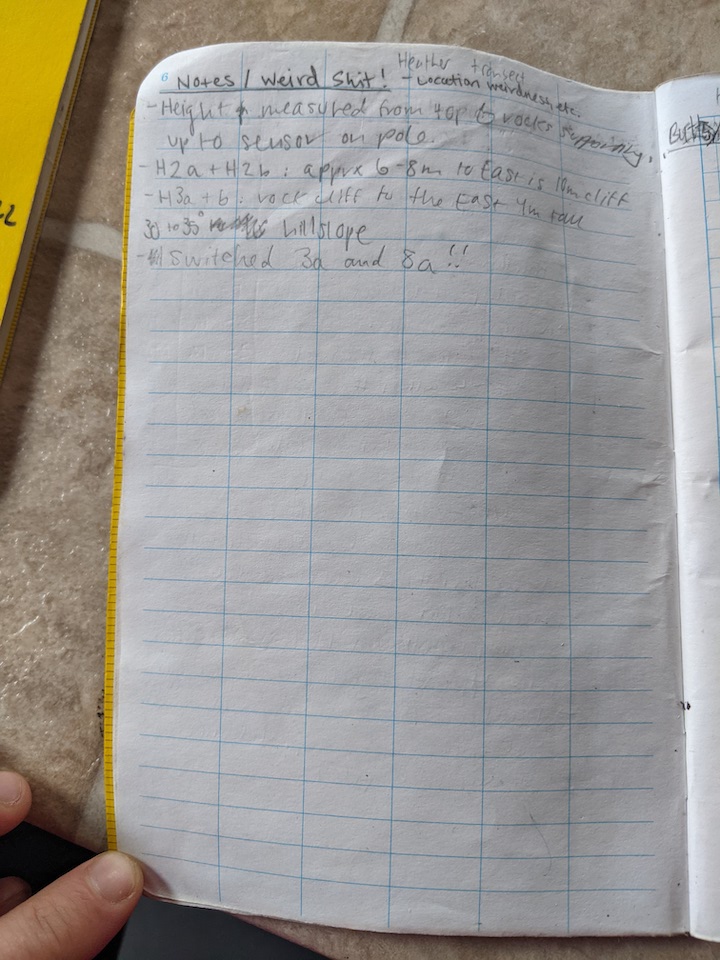 6
Heather transect
Notes / Weird Shit! - Location weirdness, etc.
- Height measured from top of rocks supporting,
up to sensor on pole.
- H2a + H2b : apprx 6-8m to East is 10m cliff
- H3a + b : rock cliff to the East 4m tall
30 to 35° hillslope
- switched 3a and 8a !!